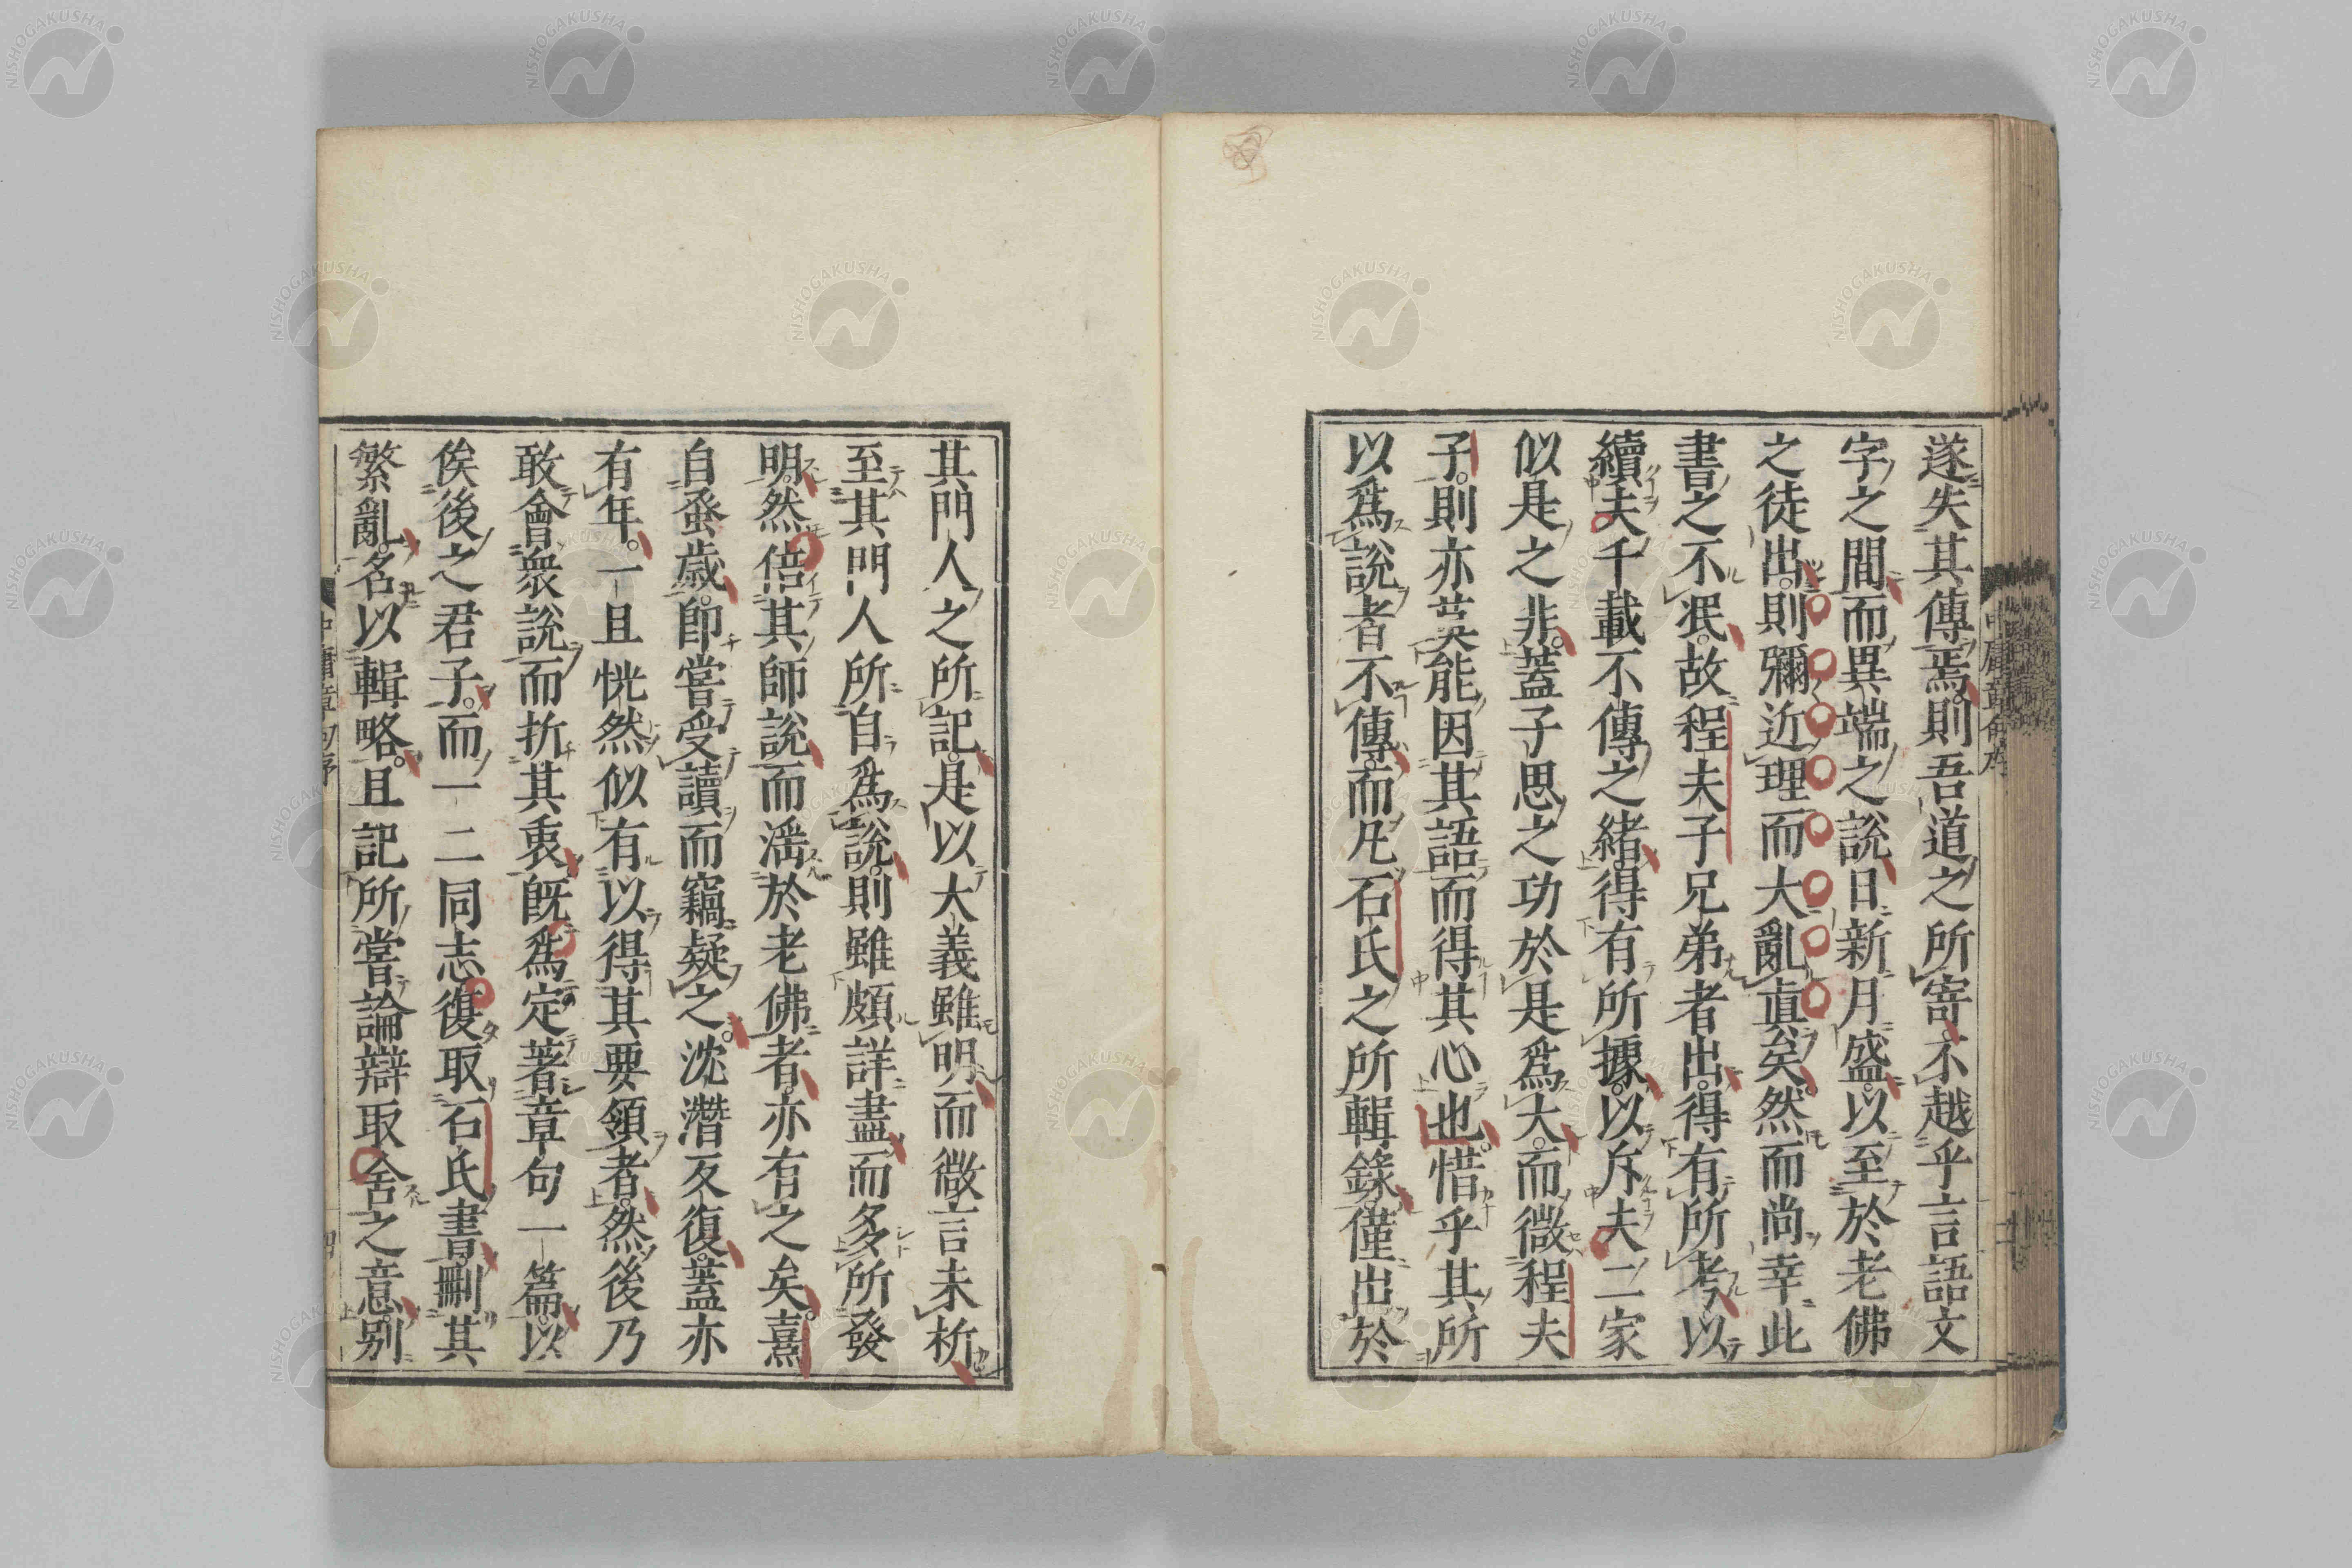 遂失其傳焉則吾道之所寄不越乎言語文
字之間而異端之說日新月盛以至於老佛
之徒出則彌近理而大亂眞矣然而尚幸此
書之不泯故程夫子兄弟者出得有所考以
續夫千載不傳之緒得有所據以斥夫二家
似是之非蓋子思之功於是爲大而微程夫
子則亦英能因其語而得其心也惜乎其所
以爲說者不傳而凡石氏之所輯錄僅出於
其門人之所記是以大義雖明而微言未析
至其門人所自爲說則雖頗詳盡而多所發
明然倍其師說而滛於老佛者亦有之矣熹
自蚤歲卽嘗受讀而竊疑之沈潛反復蓋亦
有年一旦恍然似有以得其要領者然後乃
敢會衆說而折其衷旣爲定著章句一篇以
俟後之君子而一二同志復取石氏書刪其
繁亂名以輯略且記所嘗論辯取舍之意別
中庸章句序
四
NISHOGAKUSHA